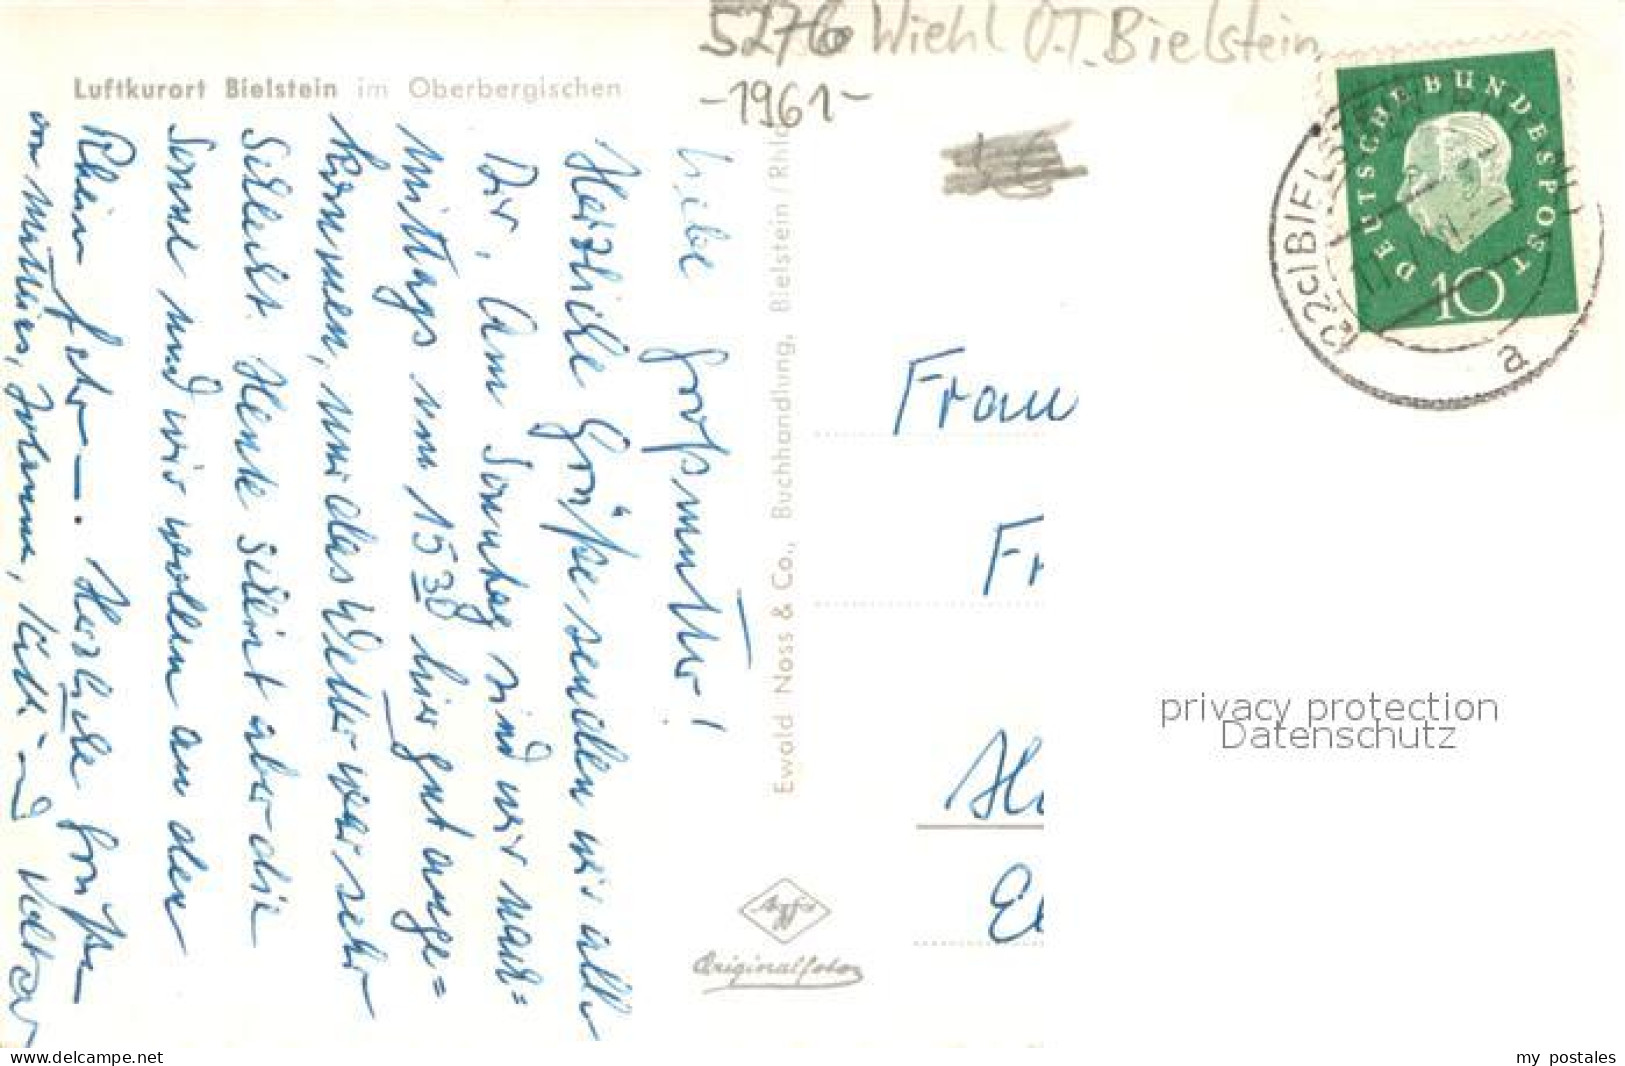 5276 Wiehl O.T. Bielstein
-1961-
Luftkurort Bielstein im Oberbergischen
Liebe Großmutter!
Herzliche Grüße senden wir alle
Dir. Am Sonntag sind wir nach=
mittags um 15 30 hier gut ange=
kommen, nur das Wetter war sehr
schlecht. Heute scheint aber die
Sonne und wir wollen an den
Rhein fahr—. Herzliche Grüße
von Mutti, und Vater
Ewald Noss & Co., Buchhandlung, Bielstein/Rhld
Agfa
Originalfoto
DEUTSCHE BUNDESPOST
10
(22c) BIELSTEIN
a
Frau
Fr
privacy protection
Datenschutz
www.delcampe.net
my_postales